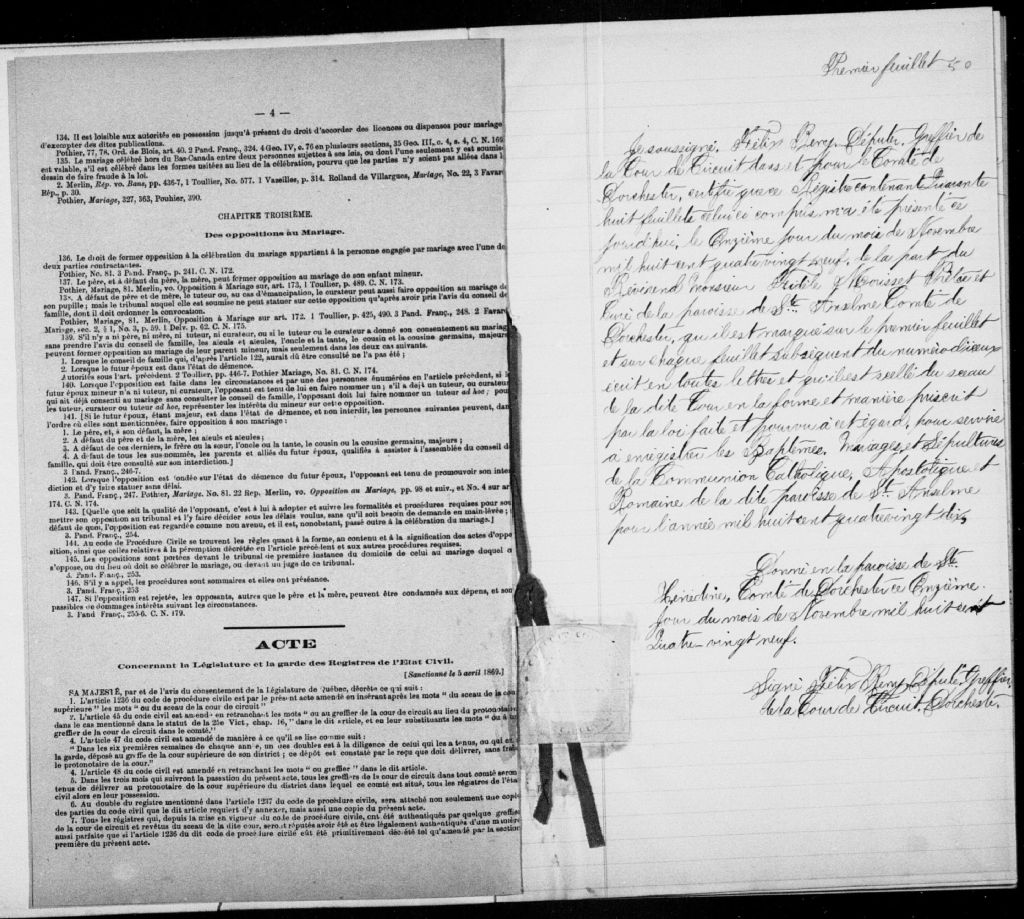 — 4 —
134. Il est loisible aux autorités en possession jusqu'à présent du droit d'accorder des licences ou dispenses pour mariage
d'exempter des dites publications.
Pothier, 77, 78. Ord. de Blois, art. 40. 2 Pand. Franç., 324. 4 Geo. IV, c. 76 en plusieurs sections, 35 Geo. III, c. 4, s. 4, C. N. 169
135. Le mariage célébré hors du Bas-Canada entre deux personnes sujettes à ses lois, ou dont l'une seulement y est soumise
est valable, s'il est célébré dans les formes usitées au lieu de la célébration, pourvu que les parties n'y soient pas allées dans l
dessein de faire fraude à la loi.
2. Merlin, Rép. vo. Bans, pp. 436-7, 1 Toullier, No. 577. 1 Vazeilles, p. 314. Rolland de Villargues, Mariage, No. 22, 3 Favar
Rép., p. 30.
Pothier, Mariage, 327, 363, Pouhier, 390.
CHAPITRE TROISIÈME.
Des oppositions au Mariage.
136. Le droit de former opposition à la célébration du mariage appartient à la personne engagée par mariage avec l'une de
deux parties contractantes.
Pothier, No. 81. 3 Pand. Franç., p. 241. C. N. 172.
137. Le père, et à défaut du père, la mère, peut former opposition au mariage de son enfant mineur.
Pothier, Mariage, 81. Merlin, vo. Opposition à Mariage, sur art. 173, 1 Toullier, p. 489. C. N. 173.
138. A défaut de père et de mère, le tuteur ou, au cas d'émancipation, le curateur peut aussi faire opposition au mariage de
son pupille; mais le tribunal auquel elle est soumise ne peut statuer sur cette opposition qu'après avoir pris l'avis du conseil de
famille, dont il doit ordonner la convocation.
Pothier, Mariage, 81. Merlin, Opposition à Mariage sur art. 172. 1 Toullier, p. 425, 490. 3 Pand. Franç., 248. 2 Favar
Mariage, sec. 2, § 1, No. 3, p. 59. 1 Delv. p. 62. C. N. 175.
139. S'il n'y a ni père, ni mère, ni tuteur, ni curateur, ou si le tuteur ou le curateur a donné son consentement au mariage
sans prendre l'avis du conseil de famille, les aieuls et aieules, l'oncle et la tante, le cousin et la cousine germains, majeurs
peuvent former opposition au mariage de leur parent mineur, mais seulement dans les deux cas suivants.
1. Lorsque le conseil de famille qui, d'après l'article 122, aurait dû être consulté ne l'a pas été ;
2. Lorsque le futur époux est dans l'état de démence.
Autorités sous l'art. précédent. 2 Toullier, pp. 446-7. Pothier Mariage, No. 81. C. N. 174.
140. Lorsque l'opposition est faite dans les circonstances et par une des personnes énumérées en l'article précédent, si l
futur époux mineur n'a ni tuteur, ni curateur, l'opposant est tenu de lui en faire nommer un ; s'il a déjà un tuteur, ou curateur
qui ait déjà consenti au mariage sans consulter le conseil de famille, l'opposant doit lui faire nommer un tuteur ad hoc ; pou
les tuteur, curateur ou tuteur ad hoc, représenter les intérêts du mineur sur cette opposition.
141. [Si le futur époux, étant majeur, est dans l'état de démence, et non interdit, les personnes suivantes peuvent, dan
l'ordre où elles sont mentionnées, faire opposition à son mariage :
1. Le père, et, à son défaut, la mère ;
2. A défaut du père et de la mère, les aieuls et aieules ;
3. A défaut de ces derniers, le frère ou la sœur, l'oncle ou la tante, le cousin ou la cousine germains, majeurs ;
4. A défaut de tous les sus-nommés, les parents et alliés du futur époux, qualifiés à assister à l'assemblée du conseil d
famille, qui doit être consulté sur son interdiction.]
3 Pand. Franç., 246-7.
142. Lorsque l'opposition est fondée sur l'état de démence du futur époux, l'opposant est tenu de promouvoir son inter
diction et d'y faire statuer sans délai.
3. Pand. Franç., 247. Pothier, Mariage. No. 81. 22 Rep. Merlin, vo. Opposition au Mariage, pp. 98 et suiv., et No. 4 sur ar
174. C. N. 174.
143. [Quelle que soit la qualité de l'opposant, c'est à lui à adopter et suivre les formalités et procédures requises pour sou
mettre son opposition au tribunal et l'y faire décider sous les délais voulus, sans qu'il soit besoin de demande en main-levée ;
défaut de quoi, l'opposition est regardée comme non avenue, et il est, nonobstant, passé outre à la célébration du mariage.]
3. Pand. Franç., 254.
144. Au code de Procédure Civile se trouvent les règles quant à la forme, au contenu et à la signification des actes d'oppo
sition, ainsi que celles relatives à la péremption décrétée en l'article précédent et aux autres procédures requises.
145. Les oppositions sont portées devant le tribunal de première instance du domicile de celui au mariage duquel o
s'oppose, ou du lieu où doit se célébrer le mariage, ou devant un juge de ce tribunal.
3. Pand. Franç., 253.
146. S'il y a appel, les procédures sont sommaires et elles ont préséance.
3. Pand. Franç., 253
147. Si l'opposition est rejetée, les opposants, autres que le père et la mère, peuvent être condamnés aux dépens, et son
passibles de dommages intérêts suivant les circonstances.
3. Pand Franç., 255-6. C. N. 179.
ACTE
Concernant la Législature et la garde des Registres de l'Etat Civil.
[Sanctionné le 5 avril 1869.]
SA MAJESTÉ, par et de l'avis du consentement de la Législature de Québec, décrète ce qui suit :
1. L'article 1236 du code de procédure civile est par le présent acte amendé en insérant après les mots "du sceau de la cou
supérieure" les mots "ou du sceau de la cour de circuit"
2. L'article 45 du code civil est amendé en retranchant les mots "ou au greffier de la cour de circuit au lieu du protonotaire
dans le cas mentionné dans le statut de la 25e Vict, chap. 16," dans le dit article, et en leur substituants les mots "ou à u
greffier de la cour de circuit dans le comté."
4. L'article 47 du code civil est amendé de manière à ce qu'il se lise comme suit :
"Dans les six premières semaines de chaque année, un des doubles est à la diligence de celui qui les a tenus, ou qui en
la garde, déposé au greffe de la cour supérieure de son district ; ce dépôt est constaté par le reçu que doit délivrer, sans frais
le protonotaire de la cour."
4. L'article 48 du code civil est amendé en retranchant les mots "ou greffier" dans le dit article.
5. Dans les trois mois qui suivront la passation du présent acte, tous les greffiers de la cour de circuit dans tout comté seron
tenus de délivrer au protonotaire de la cour supérieure du district dans lequel ce comté est situé, tous les registres de l'éta
civil alors en leur possession.
6. Au double du registre mentionné dans l'article 1237 du code de procédure civile, sera attaché non seulement une copie
des parties du code civil que le dit article requiert d'y annexer, mais aussi une copie du présent acte.
7. Tous les régistres qui, depuis la mise en vigueur du code de procédure civile, ont été authentiqués par quelque greffie
de la cour de circuit et revêtus du sceau de la dite cour, seront réputés avoir été et être légalement authentiqués d'une manière
aussi parfaite que si l'article 1236 du dit code de procédure civile eût été primitivement décrété tel qu'amendé par la section
première du présent acte.
Premier feuillet 50
Je soussigné, Félix Remy, Député Greffier de
la Cour de Circuit dans et pour le Comté de
Dorchester, certifie que ce Régistre contenant Quarante
huit feuillets celui ci compris m'a été présenté ce
jourd'hui, le Onzième jour du mois de Novembre
mil huit cent quatre vingt neuf, de la part du
Révérend Monsieur Prêtre et
Curé de la paroisse de Ste. Anselme Comté de
Dorchester, qu'il est marqué sur le premier feuillet
et sur chaque feuillet subséquent du numéro d'iceux
écrit en toutes lettres et qu'il est scellé du sceau
de la dite Cour en la forme et manière prescrit
par la loi faite et pourvu à cet égard, pour servir
à enregistrer les Baptêmes, Mariages et Sépultures
de la Communion Catholique, Apostolique et
Romaine de la dite paroisse de St. Anselme
pour l'année mil huit cent quatre vingt dix.
Donné en la paroisse de Ste.
Hénédine, Comté de Dorchester ce Onzième
jour du mois de Novembre mil huit cent
Quatre-vingt neuf.
Signé Félix Remy, Député Greffier
de la Cour de Circuit, Dorchester.